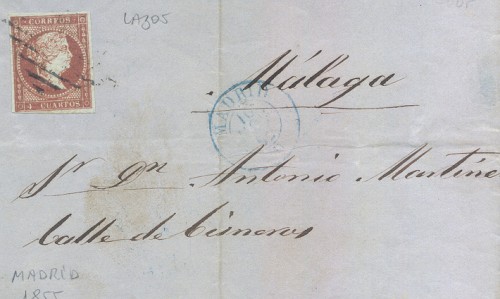 LAZOS
CORREOS
4 CUARTOS
Málaga
MADRID
Sr Dn Antonio Martine
Calle de Cisneros
MADRID
1855